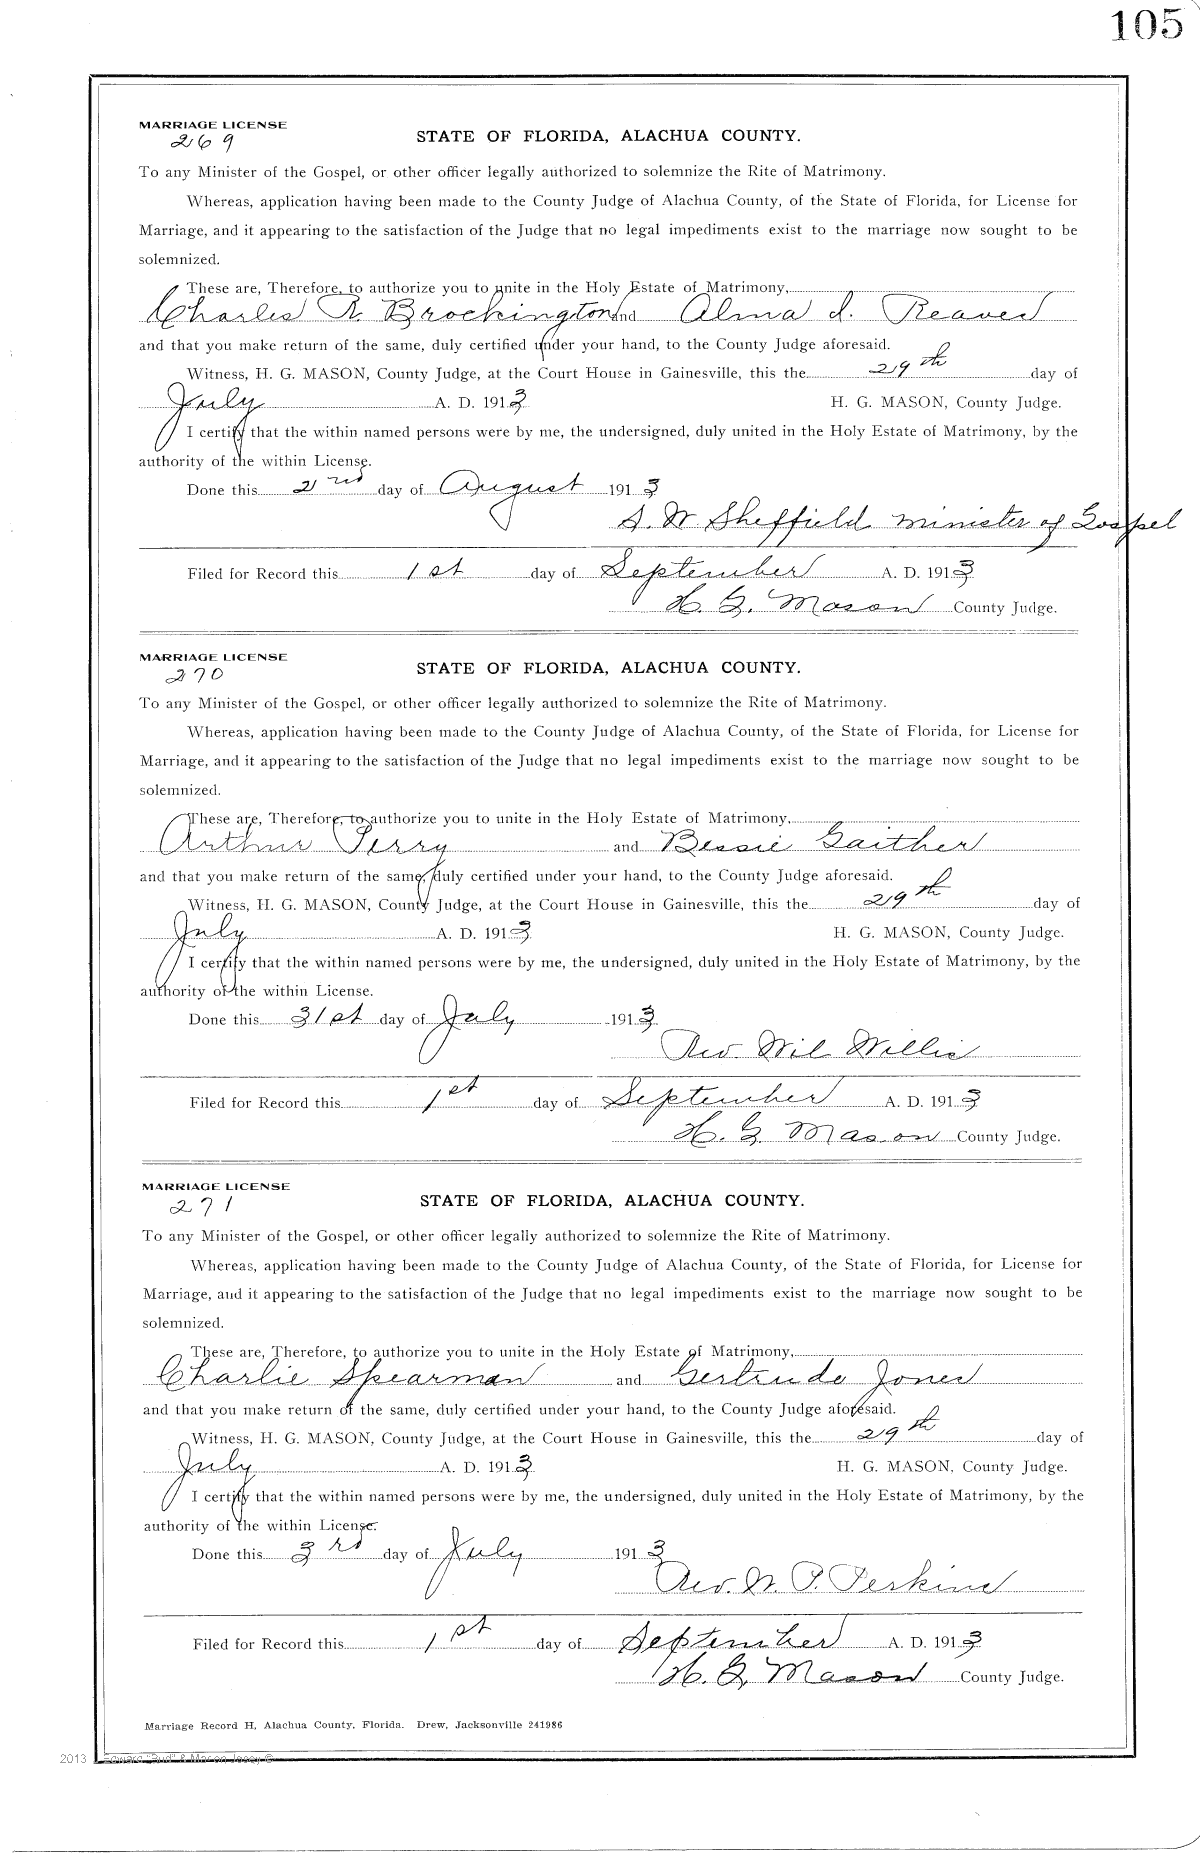 105
MARRIAGE LICENSE
269
STATE OF FLORIDA, ALACHUA COUNTY.
To any Minister of the Gospel, or other officer legally authorized to solemnize the Rite of Matrimony.
Whereas, application having been made to the County Judge of Alachua County, of the State of Florida, for License for
Marriage, and it appearing to the satisfaction of the Judge that no legal impediments exist to the marriage now sought to be
solemnized.
These are, Therefore, to authorize you to unite in the Holy Estate of Matrimony,
Charles R. Brockington and Alma I. Reaves
and that you make return of the same, duly certified under your hand, to the County Judge aforesaid.
Witness, H. G. MASON, County Judge, at the Court House in Gainesville, this the 29th day of
July A. D. 1913 H. G. MASON, County Judge.
I certify that the within named persons were by me, the undersigned, duly united in the Holy Estate of Matrimony, by the
authority of the within License.
Done this 2nd day of August 1913
S. W Sheffield minister of Gospel
Filed for Record this 1st day of September A. D. 1913
H. G. Mason County Judge.
MARRIAGE LICENSE
270
STATE OF FLORIDA, ALACHUA COUNTY.
To any Minister of the Gospel, or other officer legally authorized to solemnize the Rite of Matrimony.
Whereas, application having been made to the County Judge of Alachua County, of the State of Florida, for License for
Marriage, and it appearing to the satisfaction of the Judge that no legal impediments exist to the marriage now sought to be
solemnized.
These are, Therefore, to authorize you to unite in the Holy Estate of Matrimony,
Arthur Perry and Bessie Gaither
and that you make return of the same, duly certified under your hand, to the County Judge aforesaid.
Witness, H. G. MASON, County Judge, at the Court House in Gainesville, this the 29th day of
July A. D. 1913 H. G. MASON, County Judge.
I certify that the within named persons were by me, the undersigned, duly united in the Holy Estate of Matrimony, by the
authority of the within License.
Done this 31st day of July 1913
Rev. Wil Willis
Filed for Record this 1st day of September A. D. 1913
H. G. Mason County Judge.
MARRIAGE LICENSE
271
STATE OF FLORIDA, ALACHUA COUNTY.
To any Minister of the Gospel, or other officer legally authorized to solemnize the Rite of Matrimony.
Whereas, application having been made to the County Judge of Alachua County, of the State of Florida, for License for
Marriage, and it appearing to the satisfaction of the Judge that no legal impediments exist to the marriage now sought to be
solemnized.
These are, Therefore, to authorize you to unite in the Holy Estate of Matrimony,
Charlie Spearman and Gertrude Jones
and that you make return of the same, duly certified under your hand, to the County Judge aforesaid.
Witness, H. G. MASON, County Judge, at the Court House in Gainesville, this the 29th day of
July A. D. 1913 H. G. MASON, County Judge.
I certify that the within named persons were by me, the undersigned, duly united in the Holy Estate of Matrimony, by the
authority of the within License.
Done this 3rd day of July 1913
Rev. W. P. Perkins
Filed for Record this 1st day of September A. D. 1913
H. G. Mason County Judge.
Marriage Record H, Alachua County, Florida. Drew, Jacksonville 241986
2013 Edward "Bud" &